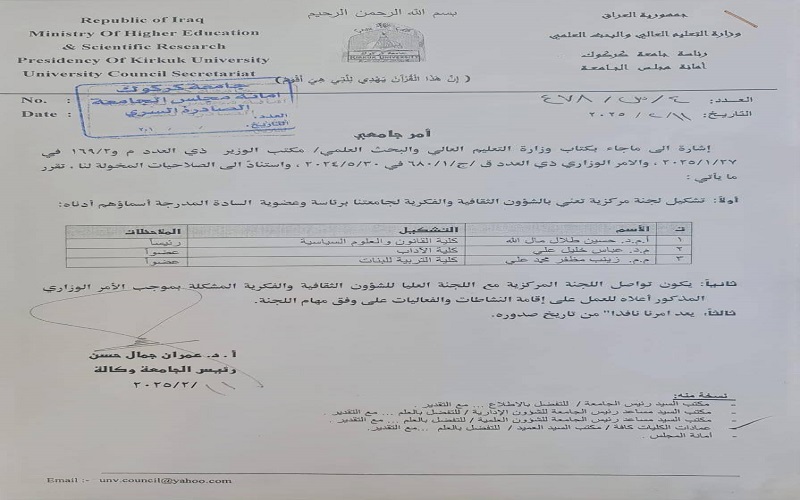 بسم الله الرحمن الرحيم
Republic of Iraq
Ministry Of Higher Education
& Scientific Research
Presidency Of Kirkuk University
University Council Secretariat
جمهورية العراق
وزارة التعليم العالي والبحث العلمي
رئاسة جامعة كركوك
أمانة مجلس الجامعة
( إِنَّ هَذَا الْقُرْآنَ يَهْدِي لِلَّتِي هِيَ أَقْوَمُ )
No. :
Date :
جامعة كركوك
امانة مجلس الجامعة
الصادرة السري
العدد:
التاريخ:
العدد:
التاريخ: / / ٢٠٢٥
أمر جامعي
إشارة الى ماجاء بكتاب وزارة التعليم العالي والبحث العلمي/ مكتب الوزير ذي العدد م و٢/١٦٩ في
٢٠٢٥/١/٢٧ ، والامر الوزاري ذي العدد ق /ج/٦٨٠/١ في ٢٠٢٤/٥/٣٠ ، واستناداً الى الصلاحيات المخولة لنا . تقرر
ما يأتي :
أولاً: تشكيل لجنة مركزية تعني بالشؤون الثقافية والفكرية لجامعتنا برئاسة وعضوية السادة المدرجة أسماؤهم أدناه:
ت الأسم التشكيل الملاحظات
١ أ.م.د. حسين طلال مال الله كلية القانون والعلوم السياسية رئيساً
٢ م.د. عباس خليل علي كلية الآداب عضواً
٣ م.م. زينب مظفر محمد علي كلية التربية للبنات عضواً
ثانياً: يكون تواصل اللجنة المركزية مع اللجنة العليا للشؤون الثقافية والفكرية المشكلة بموجب الأمر الوزاري
المذكور أعلاه للعمل على إقامة النشاطات والفعاليات على وفق مهام اللجنة.
ثالثاً: يعد امرنا نافذا" من تاريخ صدوره.
أ . د. عمران جمال حسن
رئيس الجامعة وكالة
١١/ ٢٠٢٥/٢
نسخة منه:
- مكتب السيد رئيس الجامعة / للتفضل بالاطلاع ... مع التقدير .
- مكتب السيد مساعد رئيس الجامعة للشؤون الإدارية / للتفضل بالعلم ... مع التقدير.
- مكتب السيد مساعد رئيس الجامعة للشؤون العلمية / للتفضل بالعلم ... مع التقدير .
- عمادات الكليات كافة / مكتب السيد العميد / للتفضل بالعلم ...مع التقدير.
- أمانة المجلس .
Email :- unv.council@yahoo.com